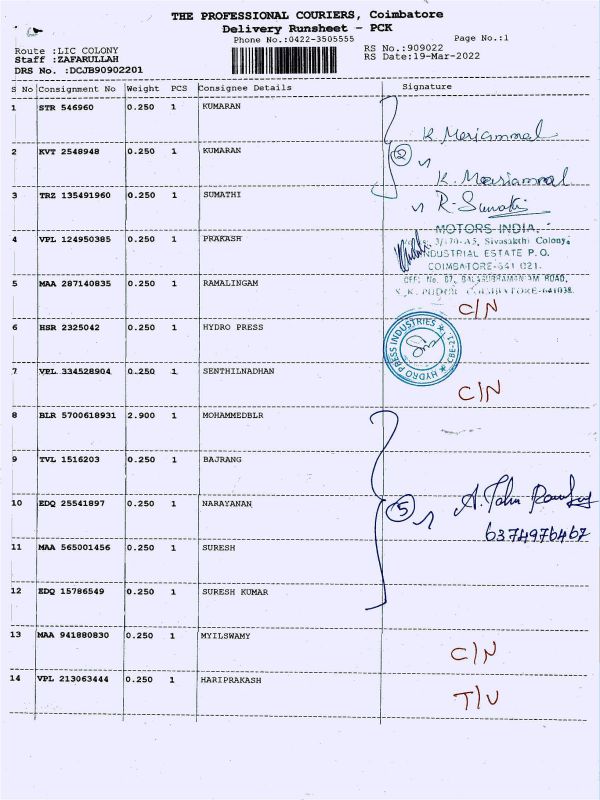 THE PROFESSIONAL COURIERS, Coimbatore
Delivery Runsheet - PCK
Phone No.:0422-3505555 Page No.:1
Route :LIC COLONY RS No.:909022
Staff :ZAFARULLAH RS Date:19-Mar-2022
DRS No. :DCJB90902201
S No Consignment No Weight PCS Consignee Details Signature
1 STR 546960 0.250 1 KUMARAN
K. Mariammal
2 KVT 2548948 0.250 1 KUMARAN 2
K. Mariammal
3 TRZ 135491960 0.250 1 SUMATHI R-Sumathi
MOTORS INDIA.
4 VPL 124950385 0.250 1 PRAKASH 3/70-A5, Sivasakthi Colony,
INDUSTRIAL ESTATE P.O.
COIMBATORE-641 021.
5 MAA 287140835 0.250 1 RAMALINGAM OFF: No. 07, BALASUBRAMANIAM ROAD,
S.K. PUDUR, COIMBATORE-641038.
C/N
6 HSR 2325042 0.250 1 HYDRO PRESS HYDRO PRESS INDUSTRIES CBE-21
7 VEL 334528904 0.250 1 SENTHILNADHAN C/N
8 BLR 5700618931 2.900 1 MOHAMMEDBLR
9 TVL 1516203 0.250 1 BAJRANG
10 EDQ 25541897 0.250 1 NARAYANAN 5 A. John
6374976467
11 MAA 565001456 0.250 1 SURESH
12 EDQ 15786549 0.250 1 SURESH KUMAR
13 MAA 941880830 0.250 1 MYILSWAMY C/N
14 VPL 213063444 0.250 1 HARIPRAKASH T/U